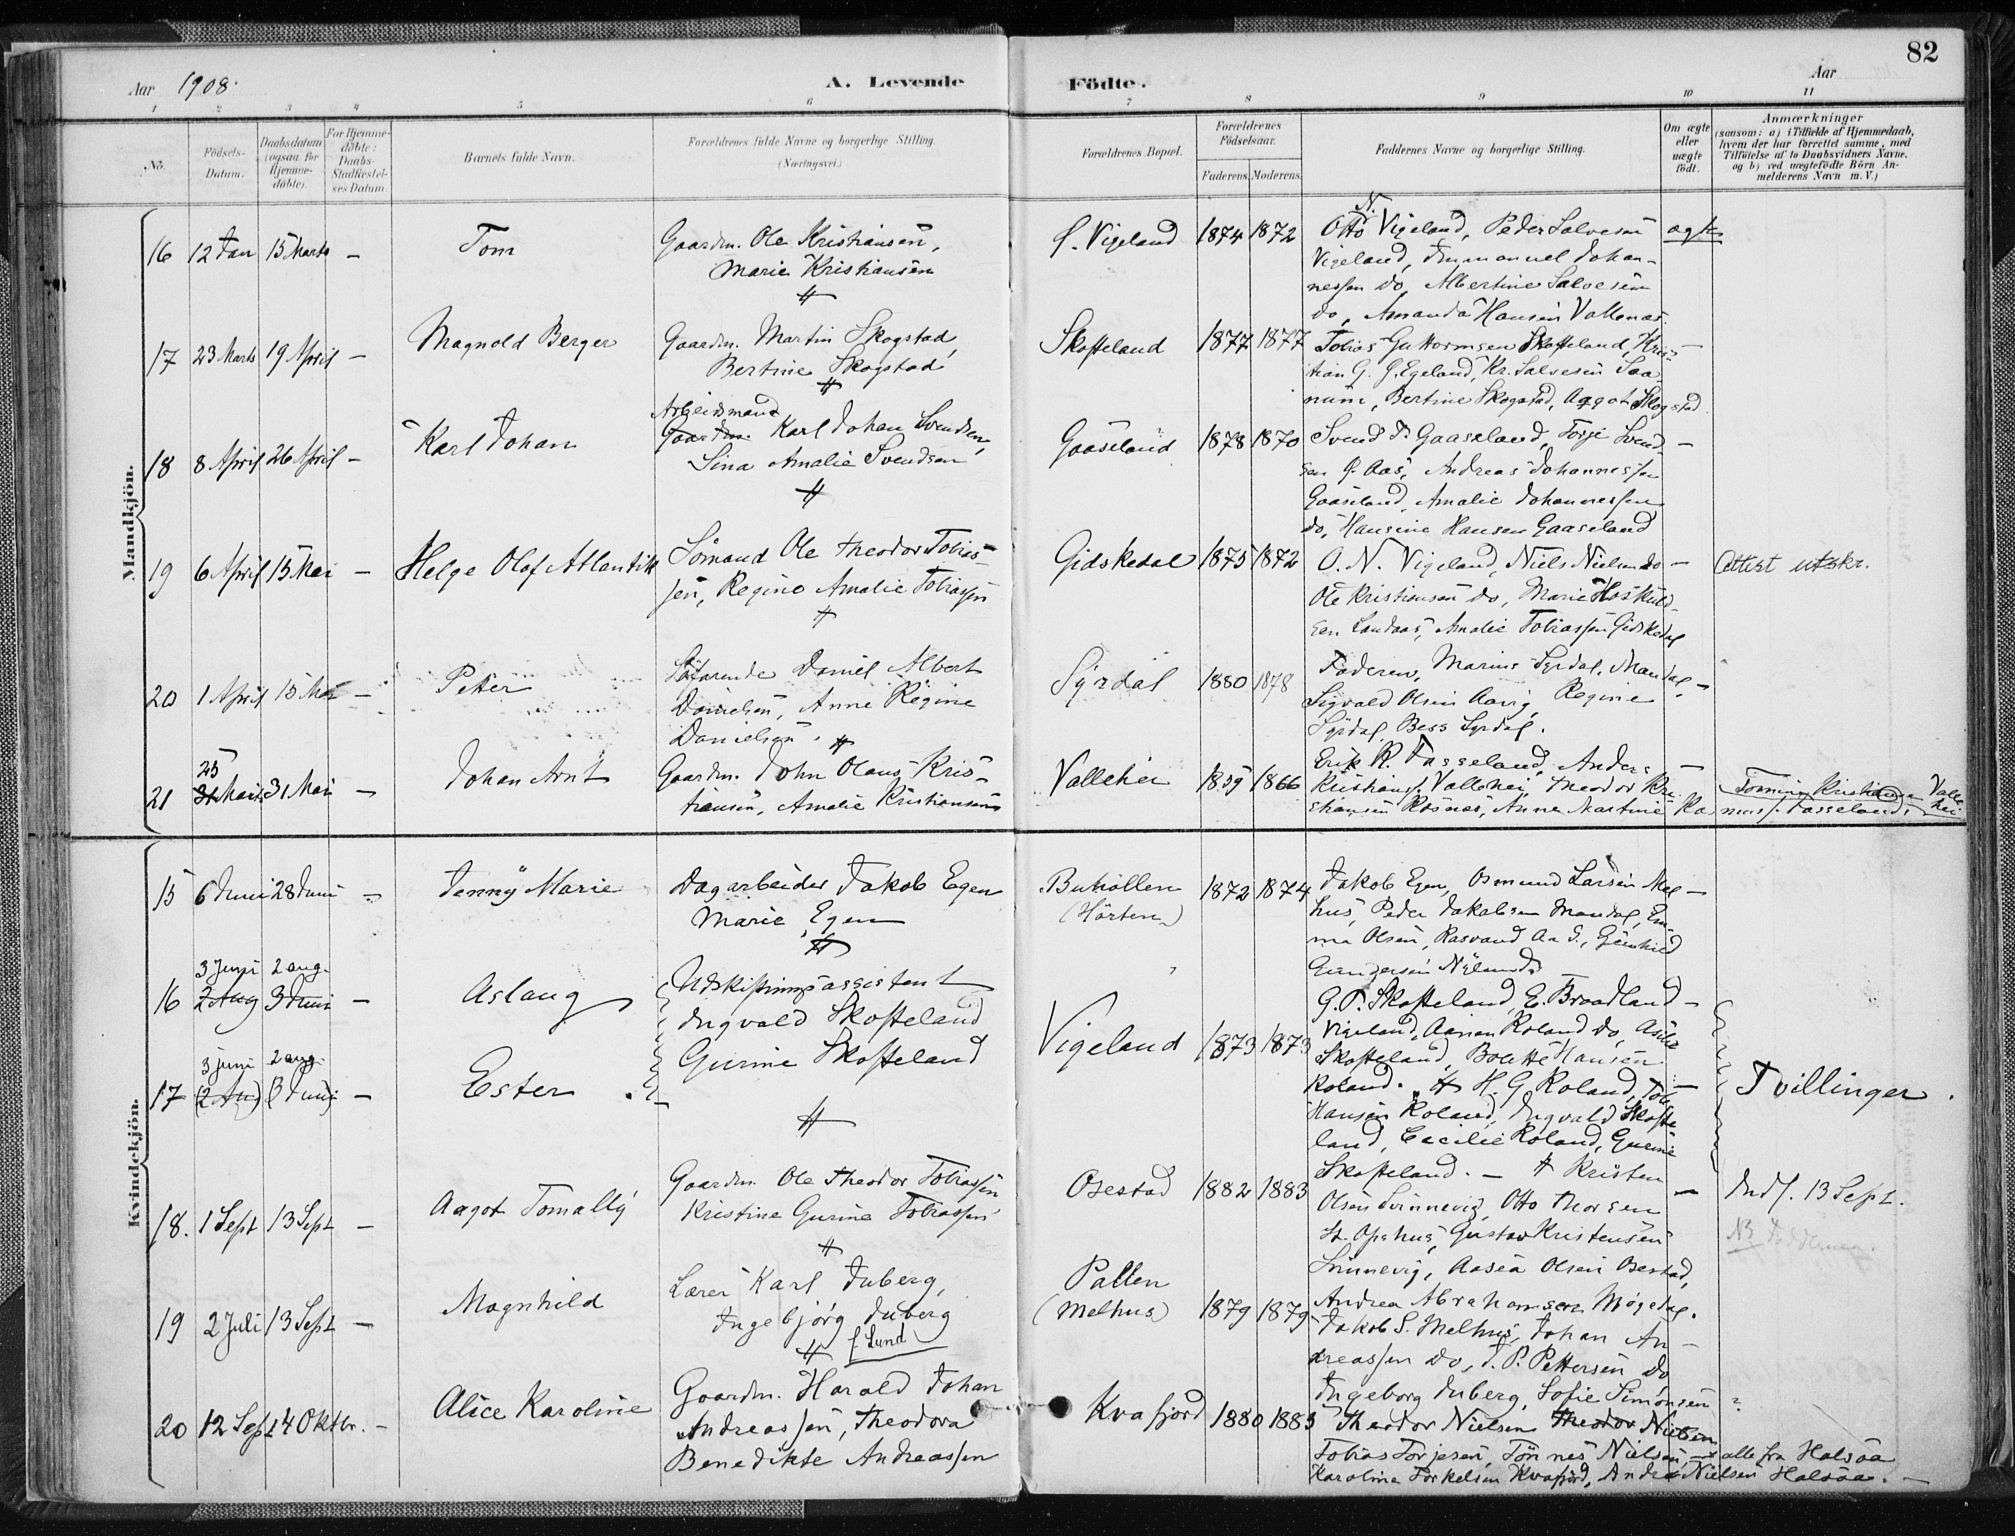 82
Aar 1908.
A. Levende
Födte.
Aar
1 2 3 4 5 6 7 8 9 10 11
No.
Födsels-Datum.
Daabsdatum (ogsaa for Hjemme-döbte).
For Hjemme-döbte: Daabs-Stadfæstel-ses Datum
Barnets fulde Navn.
Forældrenes fulde Navne og borgerlige Stilling. (Næringsvei.)
Forældrenes Bopæl.
Forældrenes Födselsaar.
Faderens. Moderens.
Faddernes Navne og borgerlige Stilling.
Om ægte eller uægte födt.
Anmærkninger
(saasom: a) i Tilfælde af Hjemmedaab,
hvem der har forrettet samme, med
Tilföielse af to Daabsvidners Navne,
og b) ved uægtefödte Börn An-
melderens Navn m. V.)
Mandkjön.
16 12 Jan 15 Marts – Tom
Gaardm. Ole Kristiansen,
Marie Kristiansen
Vigeland 1874 1872
Otto N. Vigeland, Peder Salvesen
Vigeland, Immanuel Johan-
nessen do, Albertine Salvesen
do, Amanda Hansen Vattenas.
ægte
17 23 Marts 19 April – Magnold Berger
Gaardm. Martin Skogstad,
Bertine Skogstad
Skofteland 1877 1877
Tobias Guttormsen Skofteland, Kris-
tian G. Egeland, Kr. Salvesen Saa-
num, Bertine Skogstad, Aagot Skogstad
–
18 8 April 26 April – Karl Johan
Arbeidsmand
Gaardm. Karl Johan Svendsen,
Sina Amalie Svendsen
Gaaseland 1878 1870
Svend T. Gaaseland, Torje Svend-
sen Aas, Andreas Johannessen
Gaaseland, Amalie Johannessen
do, Hansine Hansen Gaaseland
–
19 6 April 15 Mai – Helge Olaf Atlantik
Sömand Ole Theodor Tobias-
sen, Regine Amalie Tobiassen
Gidskedal 1875 1872
O. N. Vigeland, Niels Nielsen do
Ole Kristiansen do, Marie Höskuld-
sen Landaas, Amalie Tobiassen Gidskedal
–
Attest utskr.
20 1 April 15 Mai – Petter
Söfarende Daniel Albert
Danielsen, Anne Regine
Danielsen.
Syrdal 1880 1878
Faderen, Marius Syrdal, Mandal,
Sigvald Olsen Aavig, Regine
Syrdal, Bess Syrdal.
–
21 25 31 Marts 31 Mai – Johan Arnt
Gaardm. John Olaus Kris-
tiansen, Amalie Kristiansen
Vallehei 1859 1866
Erik R. Fasseland, Anders
Kristians. Vallehei, Theodor Kri-
stiansen Rosnes, Anne Martine Ras-
mus. Fasseland, Tomine Kristiansen Vallehei
–
Kvindekjön.
15 6 Juni 28 Juni – Jenny Marie
Dagarbeider Jakob Egen
Marie Egen
(Hörten) 1872 1874
Jakob Egen, Osmund Larsen Mel-
hus, Peder Jakobsen Mandal, Em-
ma Olsen, Gundersen Nylund.
–
16 3 Juni 2 aug. 2 Aug 3 Juni – Aslaug
Udskiftningsassistent
Ingvald Skofteland
Gurine Skofteland
Vigeland 1873 1873
G. T. Skofteland, E. Braadland
Vigeland, Roland do,
Skofteland, Bolette Hansen
Roland.
–
17 3 juni 2 aug. (2 Au) (3 Juni) – Ester
H. G. Roland, Tob.
Hansen Roland, Ingvald Skofte-
land, Cecilie Roland, Gurine
Skofteland. –
–
Tvillinger.
18. 1 Sept 13 Sept – Aagot Tomally
Gaardm. Ole Theodor Tobiassen
Kristine Gurine Tobiassen
Osestad 1882 1883
Kristen
Olsen Svinnevig, Otto Thorsen
St. Opshus, Gustav Kristensen
Svinnevig, Aasea Olsen Osestad,
Andrea Abrahamsen Møgedal.
–
Indf. 13 Sept.
19 2 Juli 13 Sept – Magnhild
Lærer Karl Tuberg,
Ingebjörg Tuberg
f. Lund
Pallen
(Melhus) 1879 1879
Jakob S. Melhus, Johan An-
dreassen do, J. P. Pettersen do
Ingeborg Tuberg, Sofie Simonsen
–
20 12 Sept 4 Oktbr. – Alice Karoline
Gaardm. Harald Johan
Andreassen, Theodora
Benedikte Andreassen
Kvafjord 1880 1883
Theodor Nielsen Theodor Nielsen
Tobias Torjesen, Tönnes Nielsen, alle fra Halsöa
Karoline Torkelsen Kvafjord, Andrea Nielsen Halsöa. –